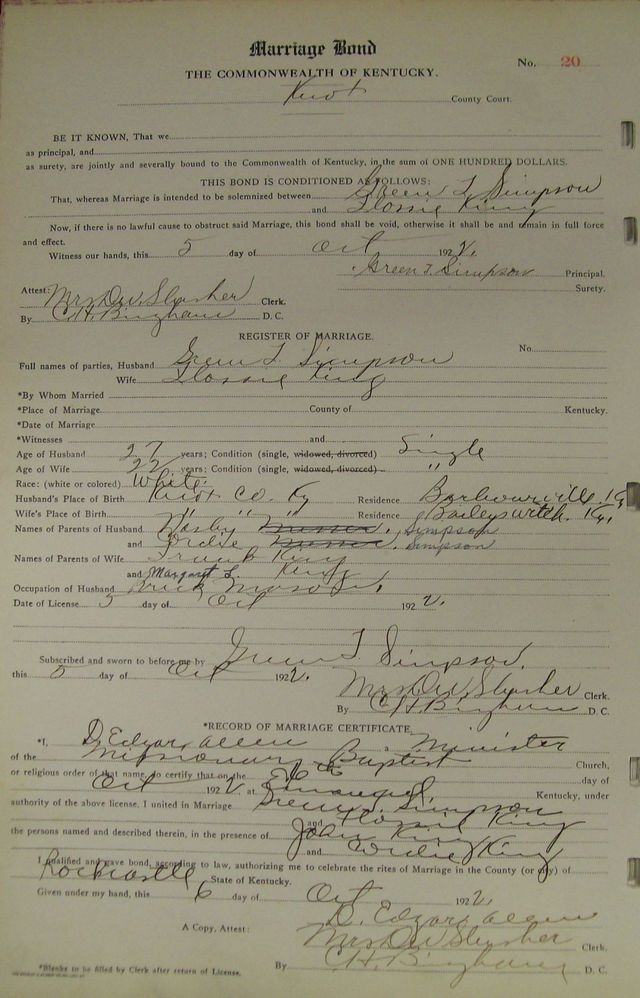 Marriage Bond
No. 20
THE COMMONWEALTH OF KENTUCKY.
Knox County Court.
BE IT KNOWN, That we
as principal, and
as surety, are jointly and severally bound to the Commonwealth of Kentucky, in the sum of ONE HUNDRED DOLLARS.
THIS BOND IS CONDITIONED AS FOLLOWS:
That, whereas Marriage is intended to be solemnized between Green T. Simpson
and Flossie King
Now, if there is no lawful cause to obstruct said Marriage, this bond shall be void, otherwise it shall be and remain in full force
and effect.
Witness our hands, this 5 day of Oct 1922.
Green T. Simpson Principal.
Surety.
Attest:
Mrs D W Slusher Clerk.
By C. H. Bingham D. C.
REGISTER OF MARRIAGE.
No.
Full names of parties, Husband Green T. Simpson
Wife Flossie King
*By Whom Married
*Place of Marriage County of Kentucky.
*Date of Marriage
*Witnesses and
Age of Husband 27 years; Condition (single, widowed, divorced) Single
Age of Wife 22 years; Condition (single, widowed, divorced) "
Race: (white or colored) White.
Husband's Place of Birth Knox Co. Ky Residence Barbourville, Ky
Wife's Place of Birth " " " Residence Baileyswitch Ky,
Names of Parents of Husband Simpson
and Simpson
Names of Parents of Wife Frank King
and Margaret L. King
Occupation of Husband Brick Mason
Date of License 5 day of Oct 1922.
Subscribed and sworn to before me by Green T Simpson.
this 5 day of Oct 1922.
Mrs D W Slusher Clerk.
By C. H. Bingham D. C.
*RECORD OF MARRIAGE CERTIFICATE
*I, D. Edgar Allen Minister
of the Missionary Baptist Church,
or religious order of that name, do certify that on the 6th day of
Oct 1922 at Emanuel, Kentucky, under
authority of the above license, I united in Marriage Green T. Simpson
and Flossie King
the persons named and described therein, in the presence of John King
and King
I qualified and gave bond, according to law, authorizing me to celebrate the rites of Marriage in the County (or city) of
Rockcastle State of Kentucky.
Given under my hand, this 6 day of Oct 1922.
D. Edgar Allen
A Copy, Attest: Mrs D W Slusher Clerk.
By C. H. Bingham D. C.
*Blanks to be filled by Clerk after return of License.